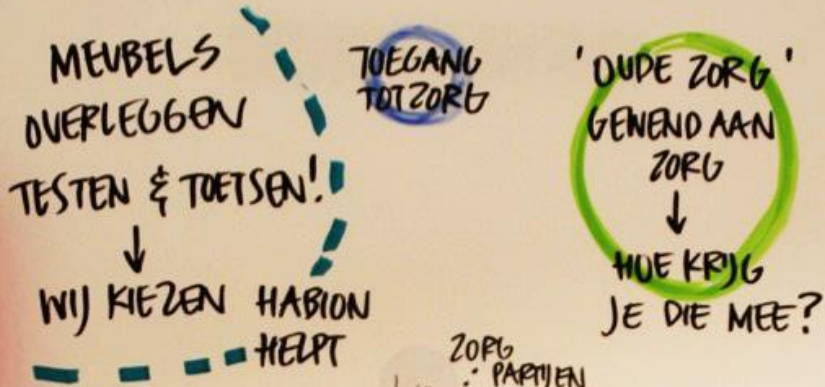 MEUBELS
OVERLEGGEN
TESTEN & TOETSEN!
↓
WIJ KIEZEN
HABION
HELPT
TOEGANG
TOT ZORG
'OUDE ZORG'
GEWEND AAN
ZORG
↓
HOE KRIJG
JE DIE MEE?
ZORG
PARTIJEN